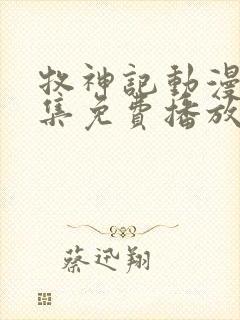 牧神記動漫
集免費播放
蔡迅翔